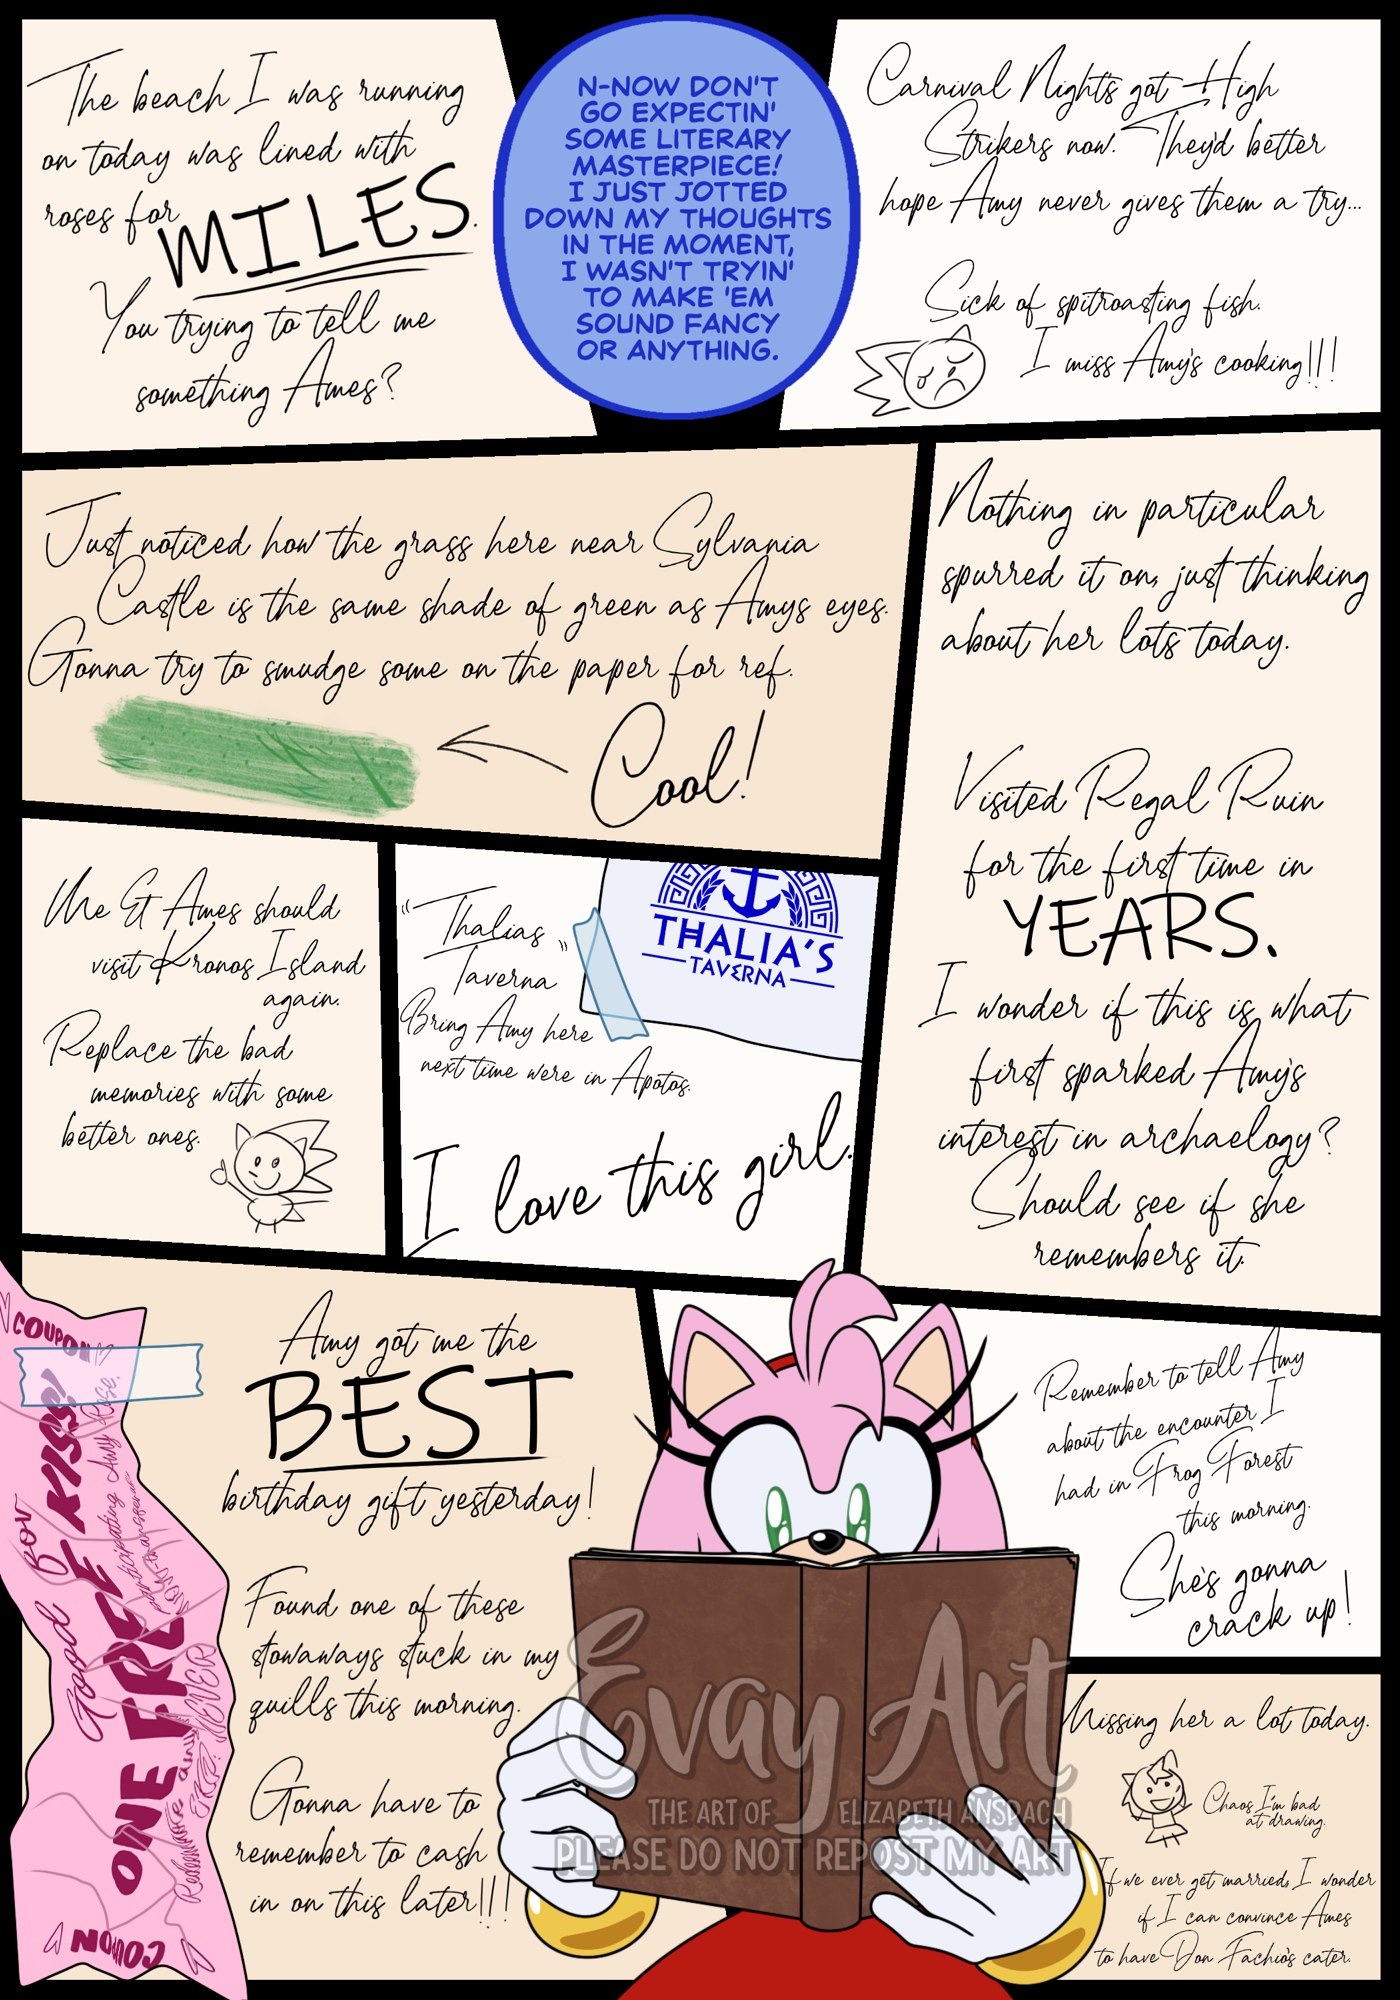 The beach I was running
on today was lined with
roses for MILES.
You trying to tell me
something Ames?
N-NOW DON'T
GO EXPECTIN'
SOME LITERARY
MASTERPIECE!
I JUST JOTTED
DOWN MY THOUGHTS
IN THE MOMENT,
I WASN'T TRYIN'
TO MAKE 'EM
SOUND FANCY
OR ANYTHING.
Carnival Nights got High
Strikers now. They'd better
hope Amy never gives them a try...
Sick of spitroasting fish.
I miss Amy's cooking!!!
Just noticed how the grass here near Sylvania
Castle is the same shade of green as Amys eyes.
Gonna try to smudge some on the paper for ref.
Cool!
Nothing in particular
spurred it on, just thinking
about her lots today.
Visited Regal Ruin
for the first time in
YEARS.
I wonder if this is what
first sparked Amy's
interest in archaelogy?
Should see if she
remembers it.
Me & Ames should
visit Kronos Island
again.
Replace the bad
memories with some
better ones.
"Thalias
Taverna"
Bring Amy here
next time were in Apotos.
THALIA'S
TAVERNA
I love this girl.
COUPON
Good for
ONE FREE KISS!
participating Amy Rose.
Redeemable any
EKR. NEVER
COUPON
Amy got me the
BEST
birthday gift yesterday!
Found one of these
stowaways stuck in my
quills this morning.
Gonna have to
remember to cash
in on this later!!!
Remember to tell Amy
about the encounter I
had in Frog Forest
this morning.
She's gonna
crack up!
Missing her a lot today.
Chaos I'm bad
at drawing.
If we ever get married, I wonder
if I can convince Ames
to have Don Fachio's cater.
Evay Art
THE ART OF ELIZABETH ANSPACH
PLEASE DO NOT REPOST MY ART